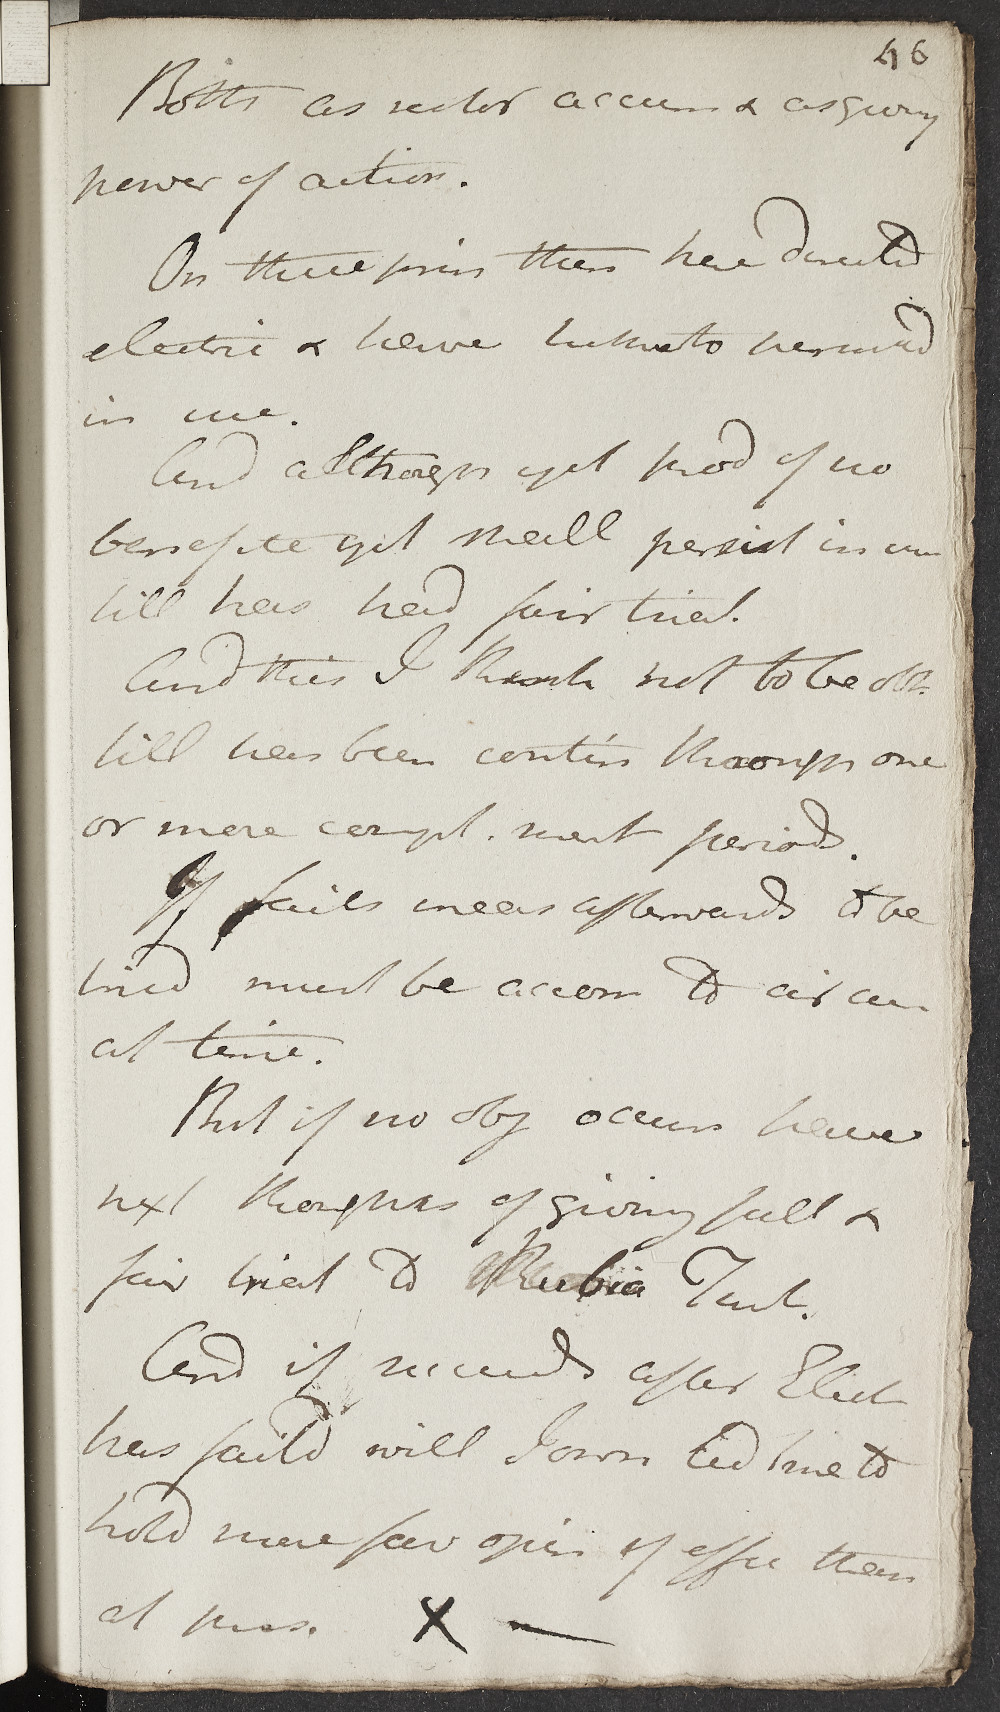 46
Both as restor accum & as giving
power of action.
On these prin then have directed
electric & have hitherto persisted
in use.
And although yet prod of no
benefite yet shall persist in use
till has had fair trial.
And this I think not to be obt
till has been contin through one
or more compl. menst periods.
If fails meas afterwards to be
tried must be accom to circum
at time.
But if no obj occurs have
next thoughts of giving full &
fair trial to Rubia Tinct.
And if succeeds after Elect
has faild will I own lead me to
hold more fav opin of effic than
at pres. X —